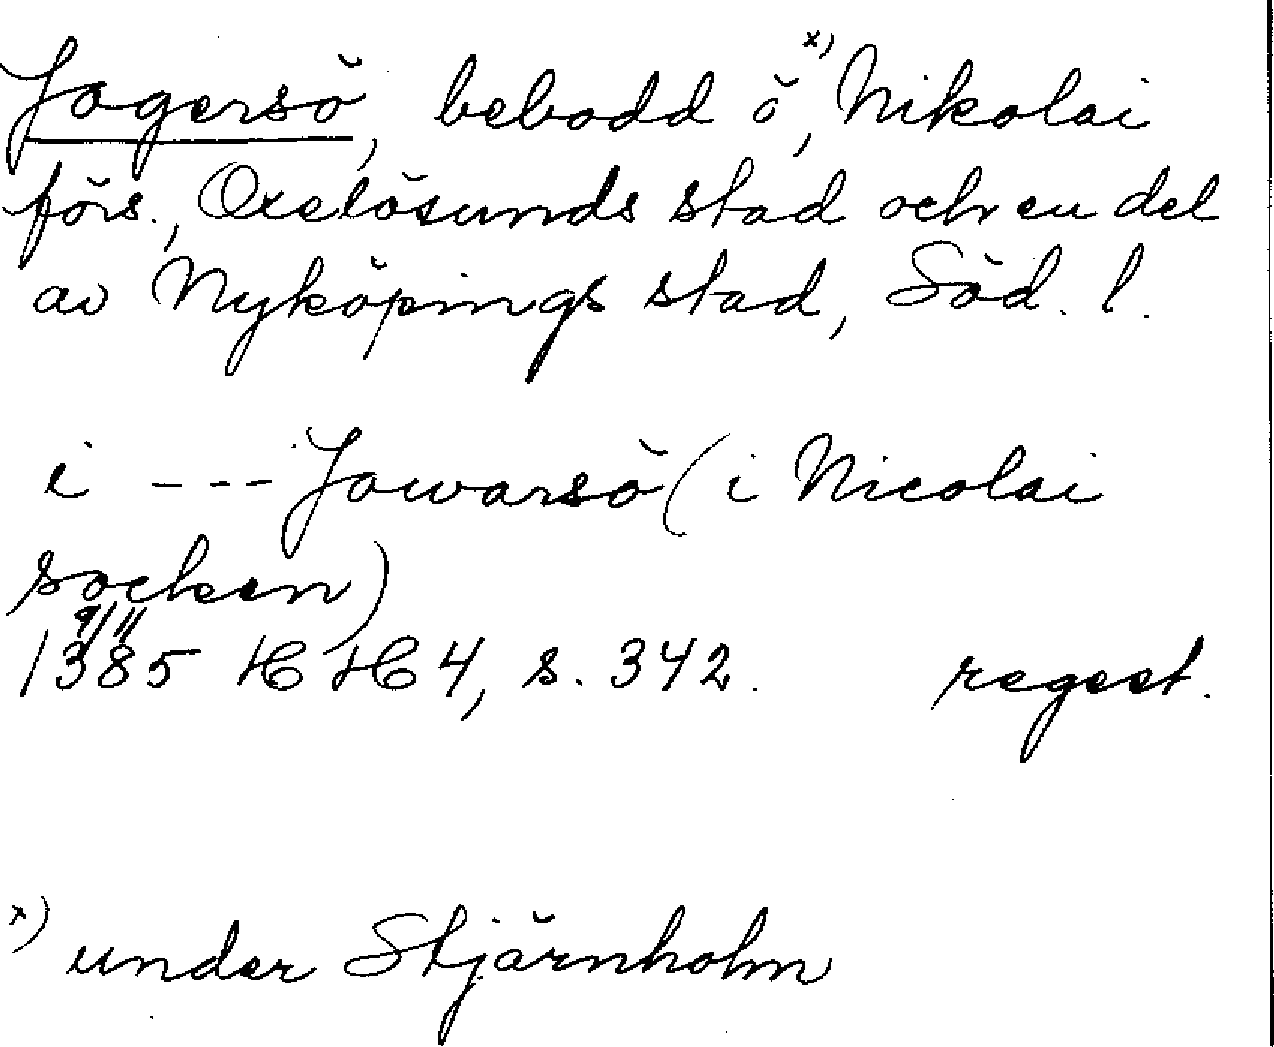 Jogersö, bebodd ö,ˣ⁾ Nikolai
förs., Oxelösunds stad och en del
av Nyköpings stad, Söd. l.
i --- Jowarsö (i Nicolai
socken)
9/11
1385 HH 4, s. 342. regest.
x) under Stjärnholm